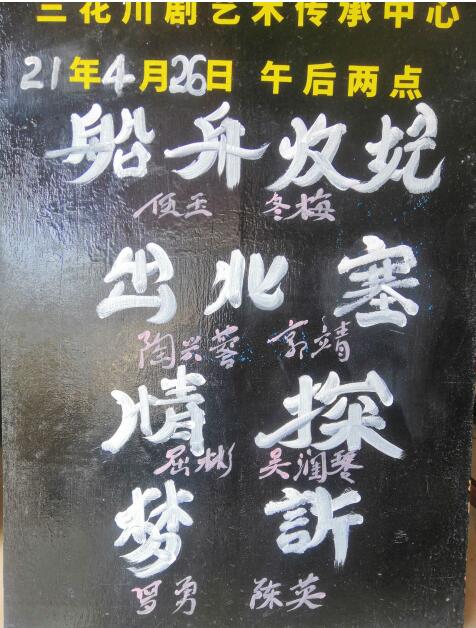 三花川剧艺术传承中心
21年4月26日 午后两点
船舟收圪
伍王 冬梅
出北塞
陶兴蓉 郭靖
情探
屈彬 吴润琴
梦訴
罗勇 陈英